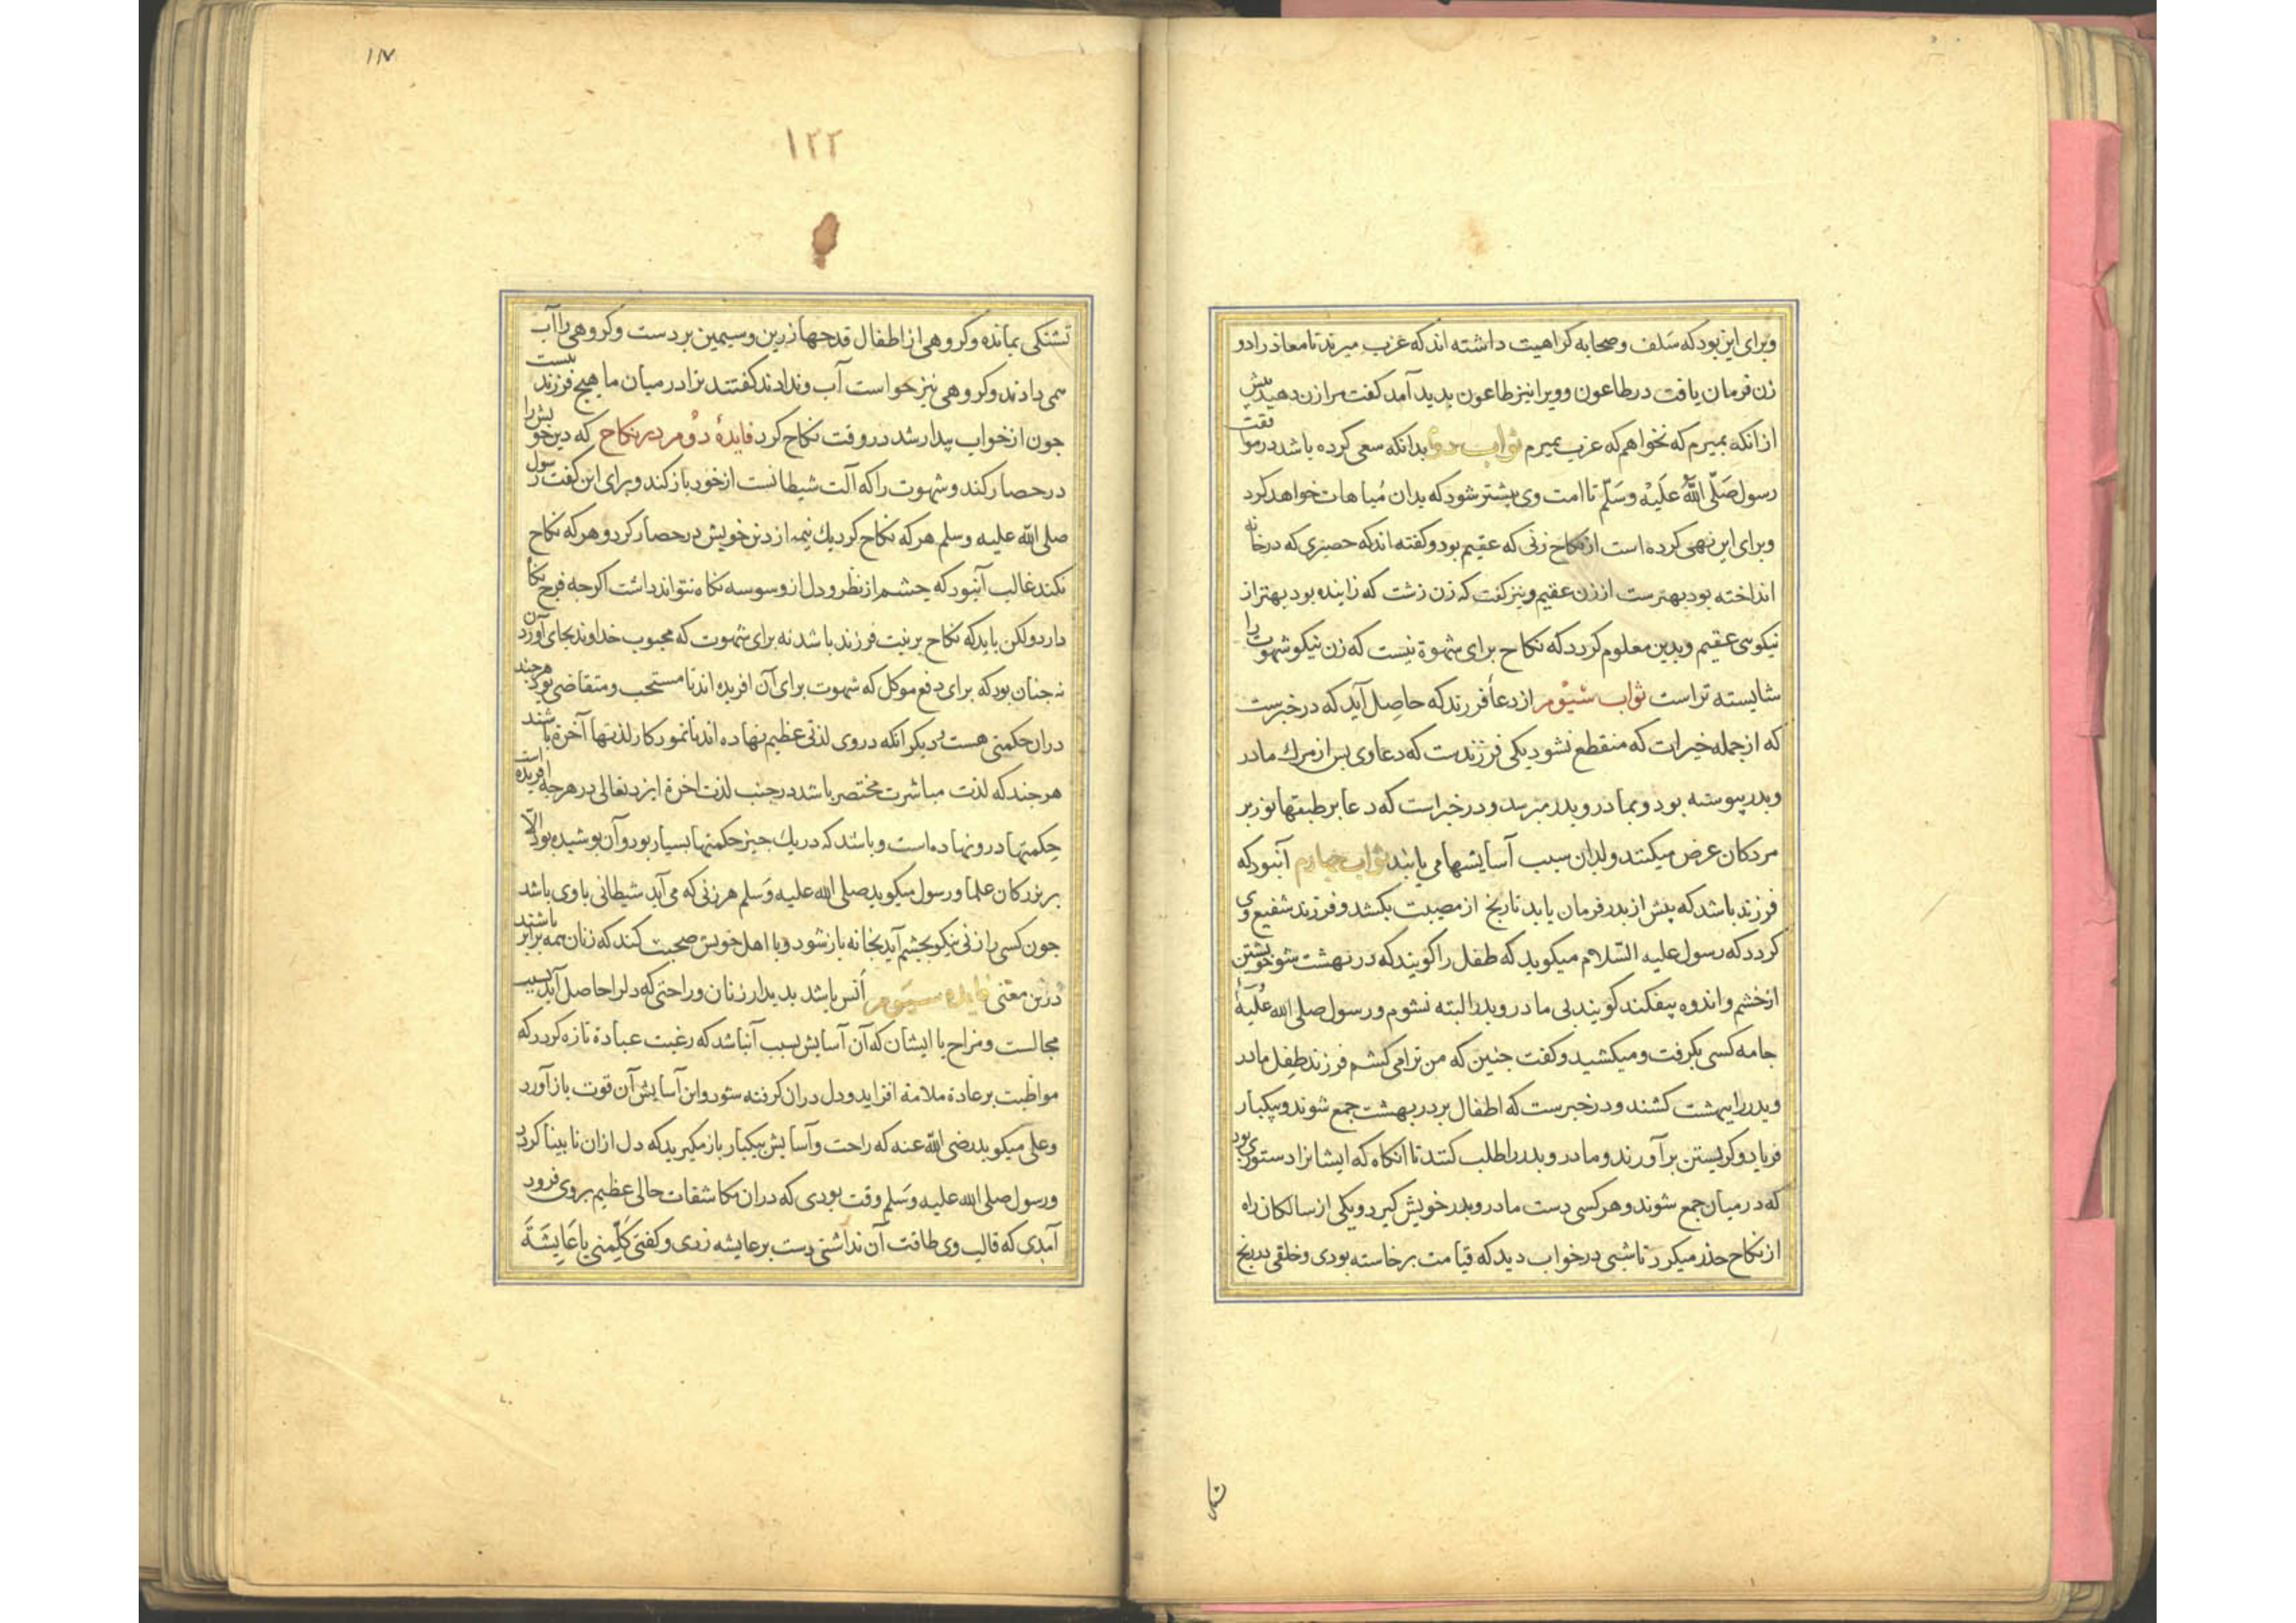 وبرای این بود که سَلف وصحابه کراهیت داشته اند که عزب میرند تا معاذ را دو
زن فرمان یافت در طاعون وویرا نیز طاعون پدید آمد کفت مرا زن دهید پیش
ازانکه بمیرم که نخواهم که عزب میرم ثواب دوم بدانکه سعی کرده باشد در موافقت
رسول صَلّی اللّٰه عَلَیْه وسَلّم تا امت وی بیشتر شود که بدان مُباهات خواهد کرد
وبرای این نهی کرده است از نکاح زنی که عقیم بود وکفته اند که حصیری که در خانه
انداخته بود بهترست از زن عقیم ونیز کفت که زن زشت که زاینده بود بهتر از
نیکویی عقیم وبدین معلوم کردد که نکاح برای شهوة نیست که زن نیکو شهوت را
شایسته تراست ثواب سّیوم از دعأ فرزند که حاصِل آید که در خبرست
که از جمله خیرات که منقطع نشود یکی فرزندست که دعاوی بس از مرك مادر
وبدر پیوسته بود وبمادر وبدر میرسد ودر خبراست که دعا بر طبقها نوز بر
مردکان عرض میکنند وبدان سبب آسایشها می یابند ثواب چهارم آنبود که
فرزند باشد که پیش از بدر فرمان یابد تا رنج از مصیبت بکشد وفرزند شفیع وی
کردد که رسول علیه السّلام میکوید که طفل را کویند که در بهشت شو خویشتن
از خشم واندوه بیفکند کویند بی مادر وبدر البته نشوم ورسول صلی الله عُلَیهِ
جامه کسی بکرفت ومیکشید وکفت جنین که من ترا می کشم فرزند طِفل مادر
وبدر را ببهشت کشند ودر خبرست که اطفال بر در بهشت جمع شوند وبیکبار
فریاد وکریستن برآورند ومادر وبدر را طلب کنند تا آنکاه که ایشانرا دستوری بود
که در میان جمع شوند وهر کسی دست مادر وبدر خویش کیرد ویکی از سالکان راه
از نکاح حذر میکرد تا شبی در خواب دید که قیامت برخاسته بودی وخلقی در رنج
تشنکی
۱۱۷
۱۲۲
تشنکی بمانده وکروهی از اطفال قدحها زرین وسیمین بر دست وکروهی را آب
می دادند وکروهی نیز خواست آب وندادند کفتند ترا در میان ما هیچ فرزند نیست
جون از خواب بیدار شد در وقت نکاح کرد فایدهٔ دوُم در نکاح که دین خویش را
در حصار کند وشهوت را که آلت شیطانست از خود باز کند وبرای این کفت رسول
صلی اللّٰه علیه وسلم هر که نکاح کرد یك نیمه از دین خویش در حصار کرد وهر که نکاح
نکند غالب آنبود که چشم از نظر ودل از وسوسه نکاه نتواند داشت اکرجه فرج نکاه
دارد ولکن باید که نکاح بر نیت فرزند باشد نه برای شهوت که محبوب خداوند بجای آوردن
نه جنان بود که برای دفع موکل که شهوت برای آن افریده اند تا مستحب ومتقاضی بود هرجند
دران حکمتی هست دیکر آنکه دروی لذتی عظیم نهاده اند تا نمودکار لذتها آخرة باشند
هرجند که لذت مباشرت مختصر باشد در جنب لذت اخرة ایزد تعالی در هرجه افریده است
حِکمتها درو نهاده است وباشد که در یك جیز حکمتها بسیار بود وآن بوشیده بود الّا
بر بزرکان علما ورسول میکوید صلی الله علیه وَسَلم هر زنی که می آید شیطانی باوی باشد
جون کسی را زنی نیکو بجشم آید بخانه باز شود وبا اهل خویش صحبت کند که زنان همه برابر باشند
درین معنی فایده سیّوم اُنس باشد بدیدار زنان وراحتی که دلرا حاصل آید بسبب
مجالست ومزاح با ایشان که آن آسایش سبب آنباشد که رغبت عبادة تازه کردد که
مواظبت بر عادة ملامة افزاید ودل دران کرفته شود واین آسایش آن قوت باز آورد
وعلی میکوید رضی اللّٰه عنه که راحت وآسایش بیکبار باز مکیرید که دل ازان نابینا کردد
ورسول صلی الله علیه وَسَلم وقت بودی که دران مکاشفات حالی عظیم بروی فرود
آمدی که قالب وی طاقت آن نداشتی دست بر عایشه زدی وکفتی کَلِّمنی یا عَایِشَةَ